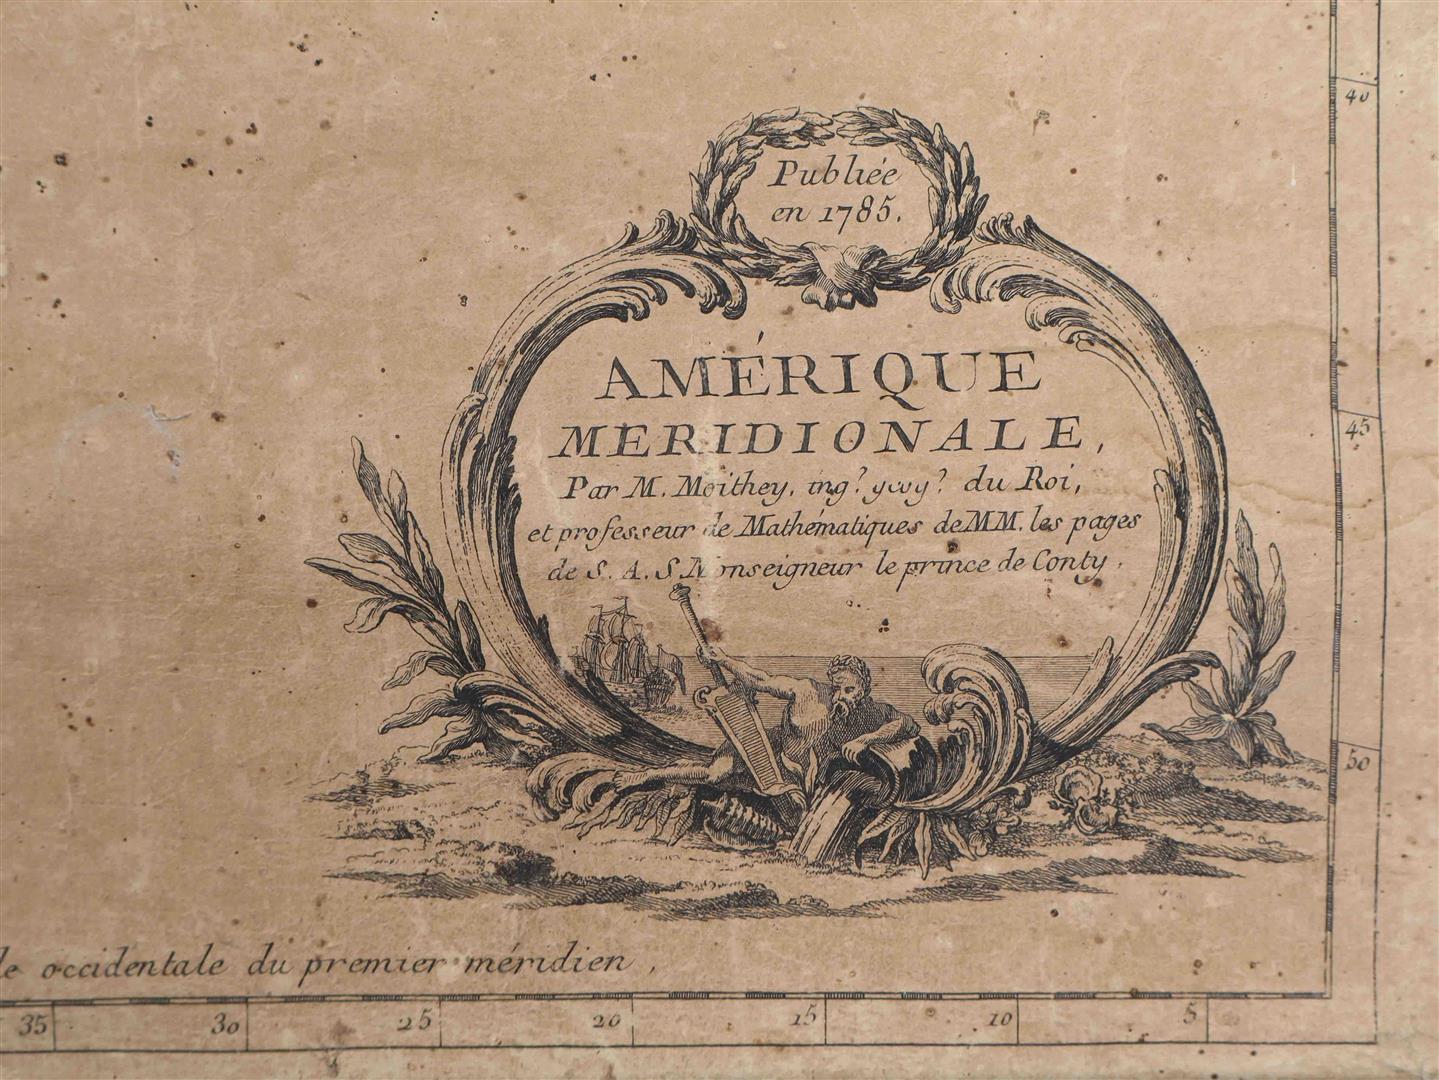 Publiée
en 1785.
AMÉRIQUE
MERIDIONALE,
Par M. Moithey, ing.r du Roi,
et professeur de Mathématiques de MM. les pages
de S. A. S Monseigneur le prince de Conty,
occidentale du premier méridien,
40
45
50
35 30 25 20 15 10 5